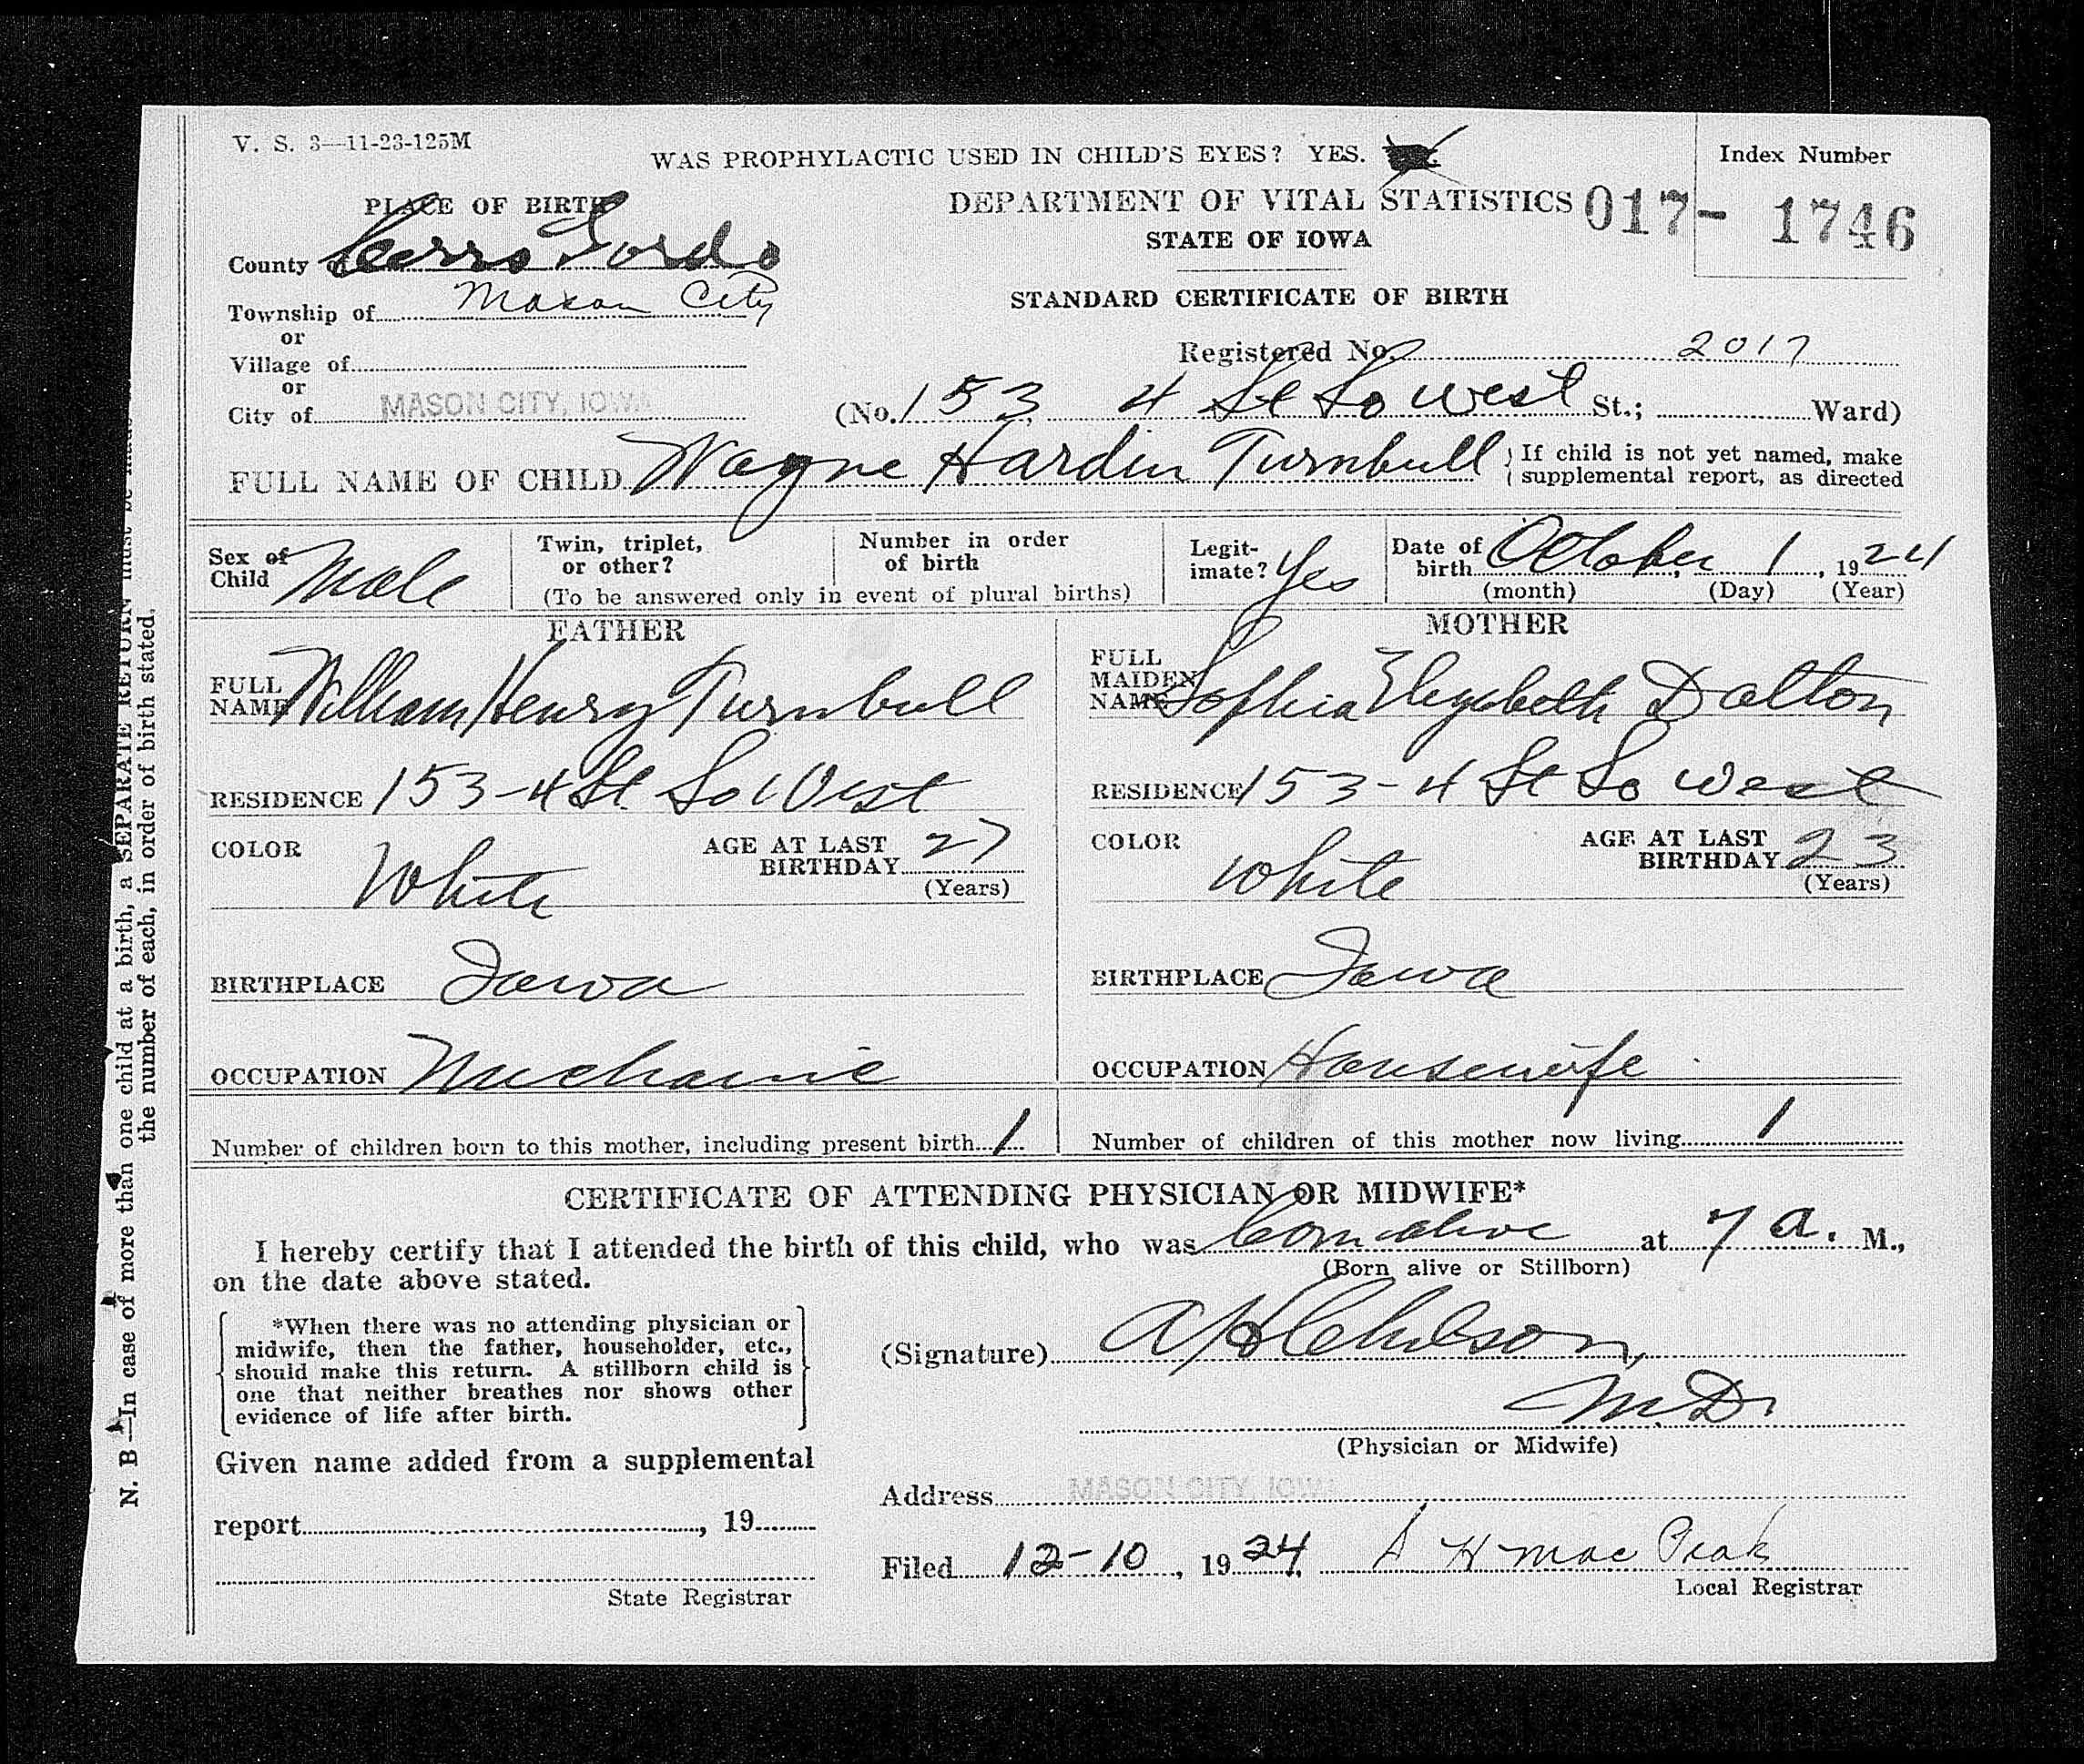 V. S. 3—11-23-125M
WAS PROPHYLACTIC USED IN CHILD'S EYES? YES.
Index Number
PLACE OF BIRTH
DEPARTMENT OF VITAL STATISTICS
017- 1746
STATE OF IOWA
County of Cerro Gordo
STANDARD CERTIFICATE OF BIRTH
Township of Mason City
or
Registered No. 2017
Village of
or
City of MASON CITY, IOWA
(No. 153 4 St So West St.; Ward)
FULL NAME OF CHILD Wayne Hardin Turnbull { If child is not yet named, make
supplemental report, as directed
Sex of Child Male
Twin, triplet, or other?
Number in order of birth
(To be answered only in event of plural births)
Legit-imate? Yes
Date of birth October 1, 1924
(month) (Day) (Year)
FATHER
FULL NAME William Henry Turnbull
RESIDENCE 153-4 St So West
COLOR White AGE AT LAST BIRTHDAY 27
(Years)
BIRTHPLACE Iowa
OCCUPATION Mechanic
MOTHER
FULL MAIDEN NAME Sophia Elizabeth Dalton
RESIDENCE 153-4 St So West
COLOR White AGE AT LAST BIRTHDAY 23
(Years)
BIRTHPLACE Iowa
OCCUPATION Housewife
Number of children born to this mother, including present birth 1
Number of children of this mother now living 1
CERTIFICATE OF ATTENDING PHYSICIAN OR MIDWIFE*
I hereby certify that I attended the birth of this child, who was born alive at 7 a. M.,
(Born alive or Stillborn)
on the date above stated.
*When there was no attending physician or
midwife, then the father, householder, etc.,
should make this return. A stillborn child is
one that neither breathes nor shows other
evidence of life after birth.
(Signature)
M.D.
(Physician or Midwife)
Given name added from a supplemental
report , 19
State Registrar
Address MASON CITY, IOWA
Filed 12-10, 1924. H Mac Peak
Local Registrar
N. B.—In case of more than one child at a birth, a SEPARATE RETURN must be made
the number of each, in order of birth stated.